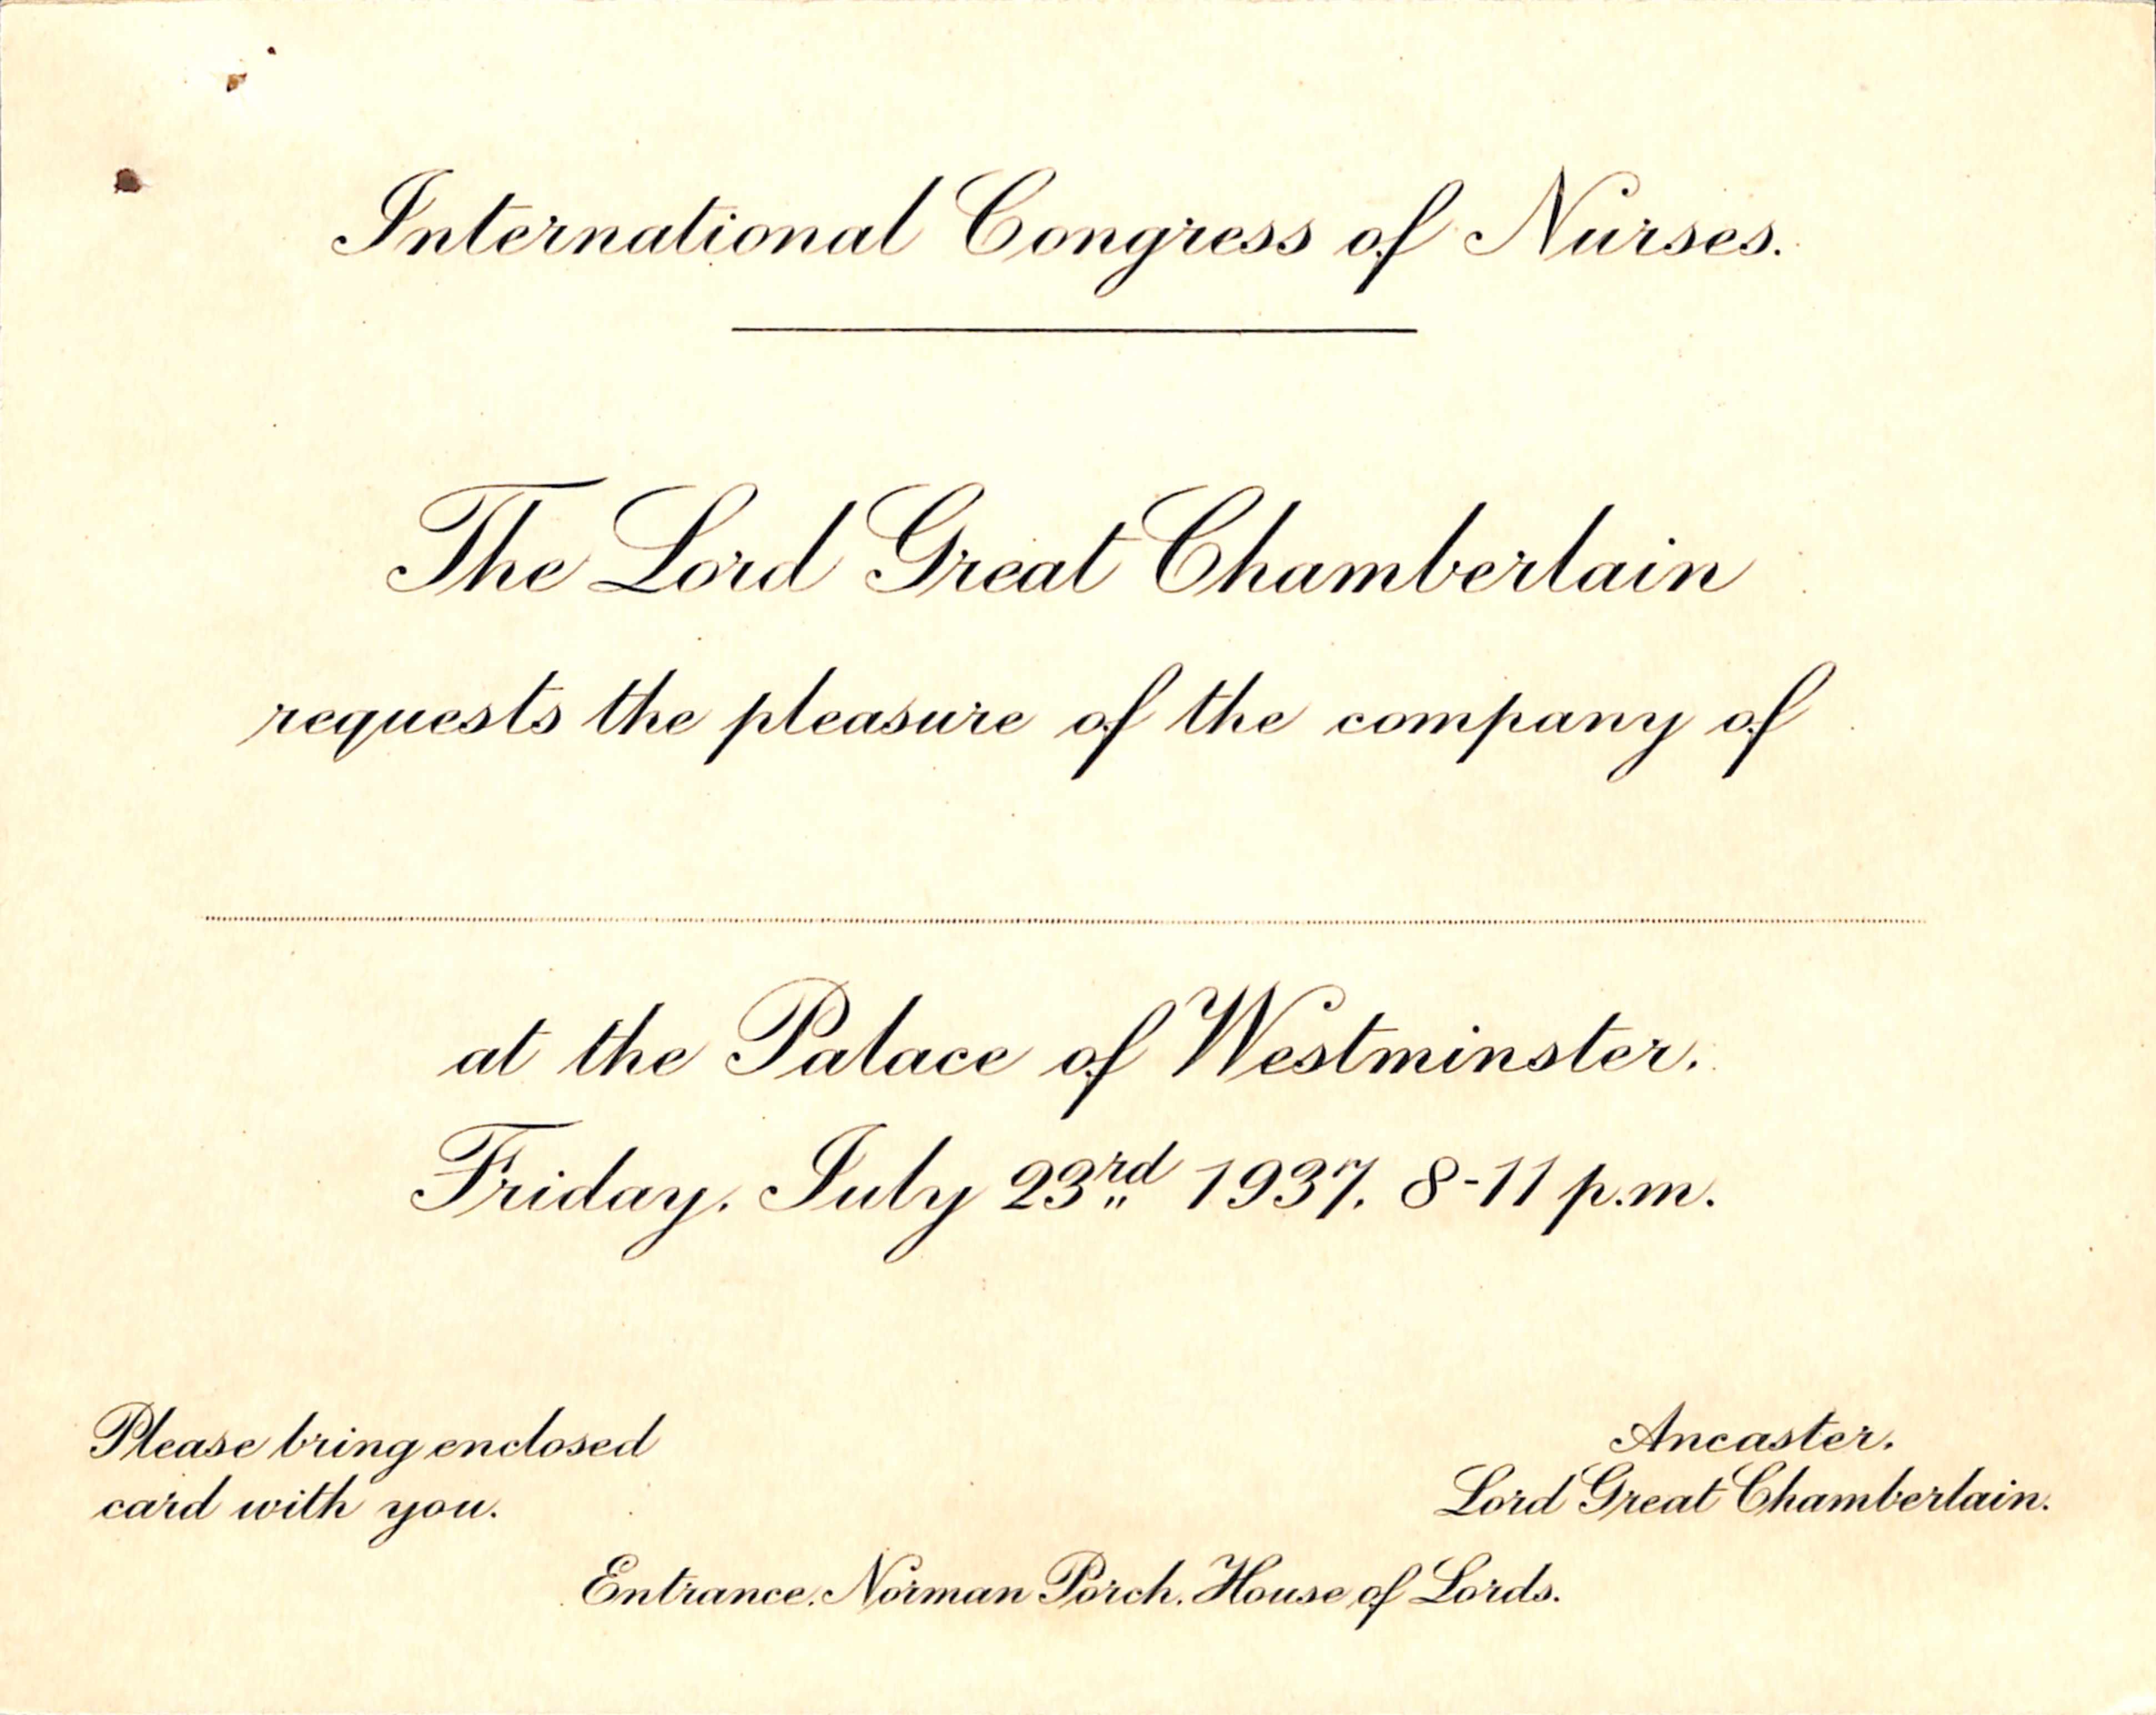 International Congress of Nurses.
The Lord Great Chamberlain
requests the pleasure of the company of
at the Palace of Westminster.
Friday. July 23rd 1937. 8-11 p.m.
Please bring enclosed
card with you.
Ancaster.
Lord Great Chamberlain.
Entrance. Norman Porch. House of Lords.